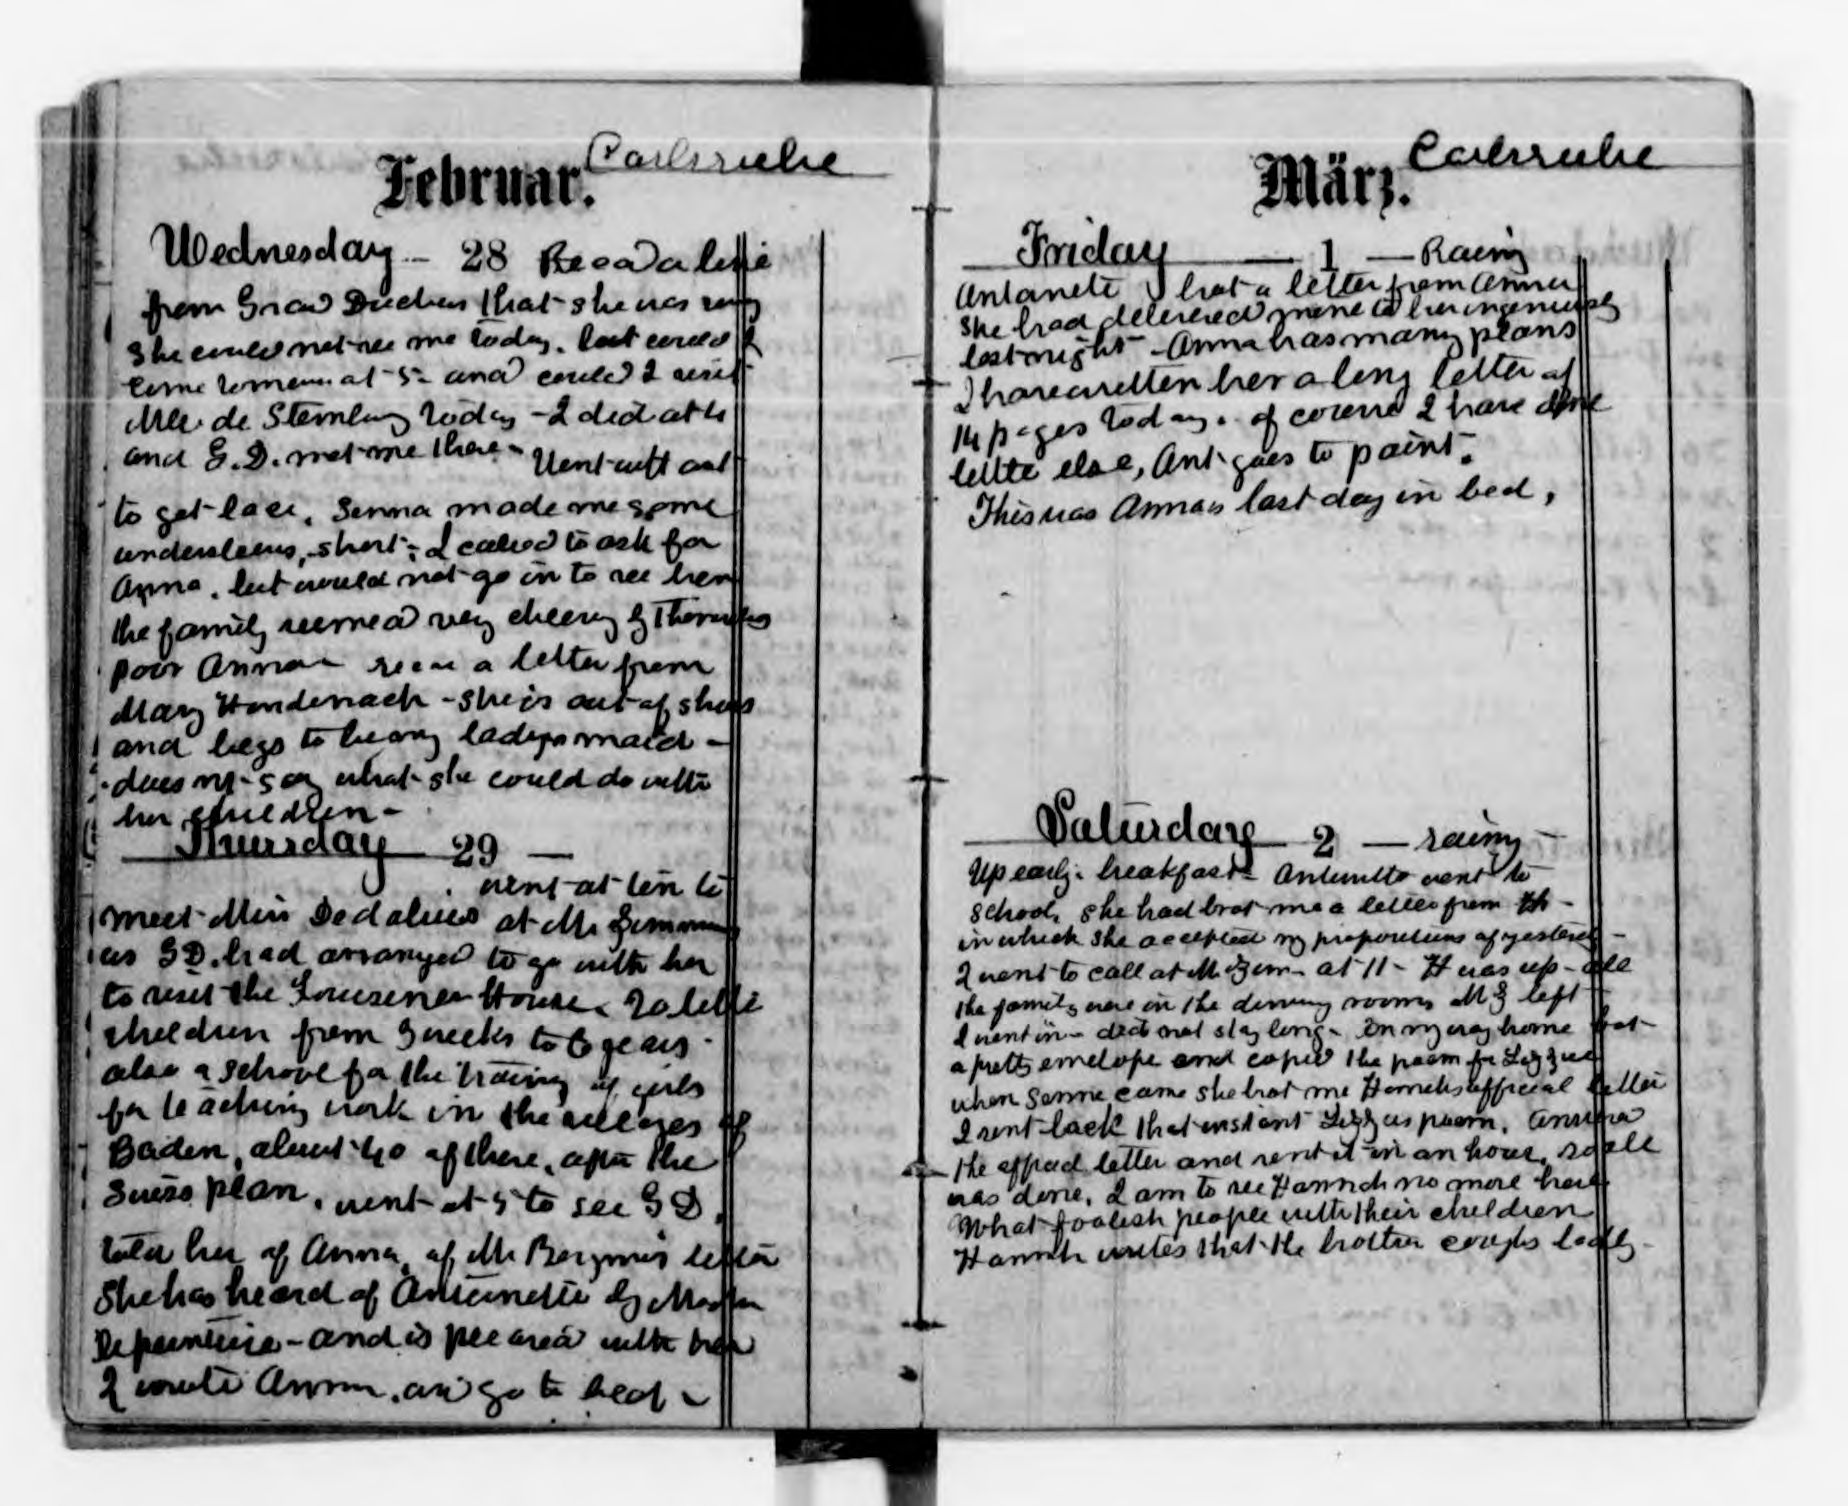 Februar. Carlsruhe
Wednesday — 28 Recd a line
from Grand Duchess that she was sorry
She could not see me today. but could I
come tomorrow at 5 - and could I visit
Mlle de Sternberg today - I did at 4
and G.D. met me there - Went out
to get lace, Senna made me some
undersleeves, short; I called to ask for
Anna, but would not go in to see her
the family seemed very cheery
poor Anna - a letter from
Mary - she is out of
and begs to be my ladys maid -
does not say what she could do with
her children -
Thursday 29 —
went at ten to
meet Miss Dedalius at
as G.D. had arranged to go with her
to visit the House. 20 little
children from 3 weeks to 6 years -
also a school for the training of girls
for teaching work in the villages of
Baden, about 40 of there, after the
Swiss plan, went at 5 to see G D.
told her of Anna, of letter
She has heard of Antoinette by
and is pleased with her
I wrote Anna, and go to bed -
März. Carlsruhe
Friday — 1 — Rainy
Antoinette brot a letter from Anna
She had delivered mine to her
last night - Anna has many plans
I have written her a long letter of
14 pages today. of course I have done
little else, Ant. goes to paint.
This was Anna's last day in bed,
Saturday 2 — rainy —
Up early: breakfast - Antoinette went to
school, she had brot me a letter from H -
in which she accepted my propositions of yesterday -
I went to call at at 11 - H was up - all
the family were in the dining room, left
I went in - did not stay long - On my way home bot
a pretty envelope and copied the poem for Lizzie
when Senna came she brot me Hannah's official letter
I sent back that instant Lizzie's poem,
the official letter and sent it in an hour, so all
was done. I am to see Hannah no more here
What foolish people with their children
Hannah writes that the brother coughs badly -